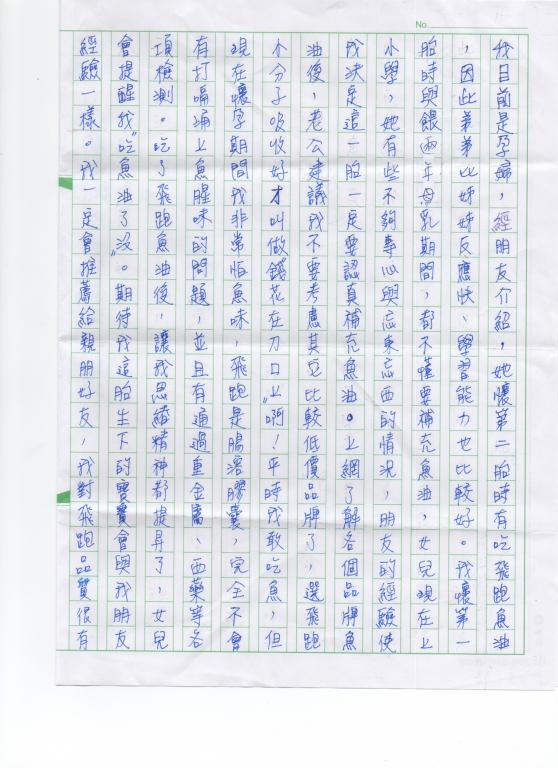 No.
我目前是孕婦，經朋友介紹，她懷第二胎時有吃飛跑魚油
，因此弟弟比姊姊反應快、學習能力也比較好。我懷第一
胎時與餵兩年母乳期間，都不懂要補充魚油，女兒現在上
小學，她有些不夠專心與忘東忘西的情況，朋友的經驗使
我決定這一胎一定要認真補充魚油。上網了解各個品牌魚
油後，老公建議我不要考慮其它比較低價品牌了，選飛跑
小分子吸收好才叫做錢花在刀口上啊！平時我敢吃魚，但
現在懷孕期間我非常怕魚味，飛跑是腸溶膠囊，完全不會
有打嗝涌上魚腥味的問題，並且有通過重金屬、西藥等各
項檢測。吃了飛跑魚油後，讓我思緒精神都提昇了，女兒
會提醒我"吃魚油了沒"。期待我這胎生下的寶寶會與我朋友
經驗一樣。我一定會推薦給親朋好友，我對飛跑品質很有